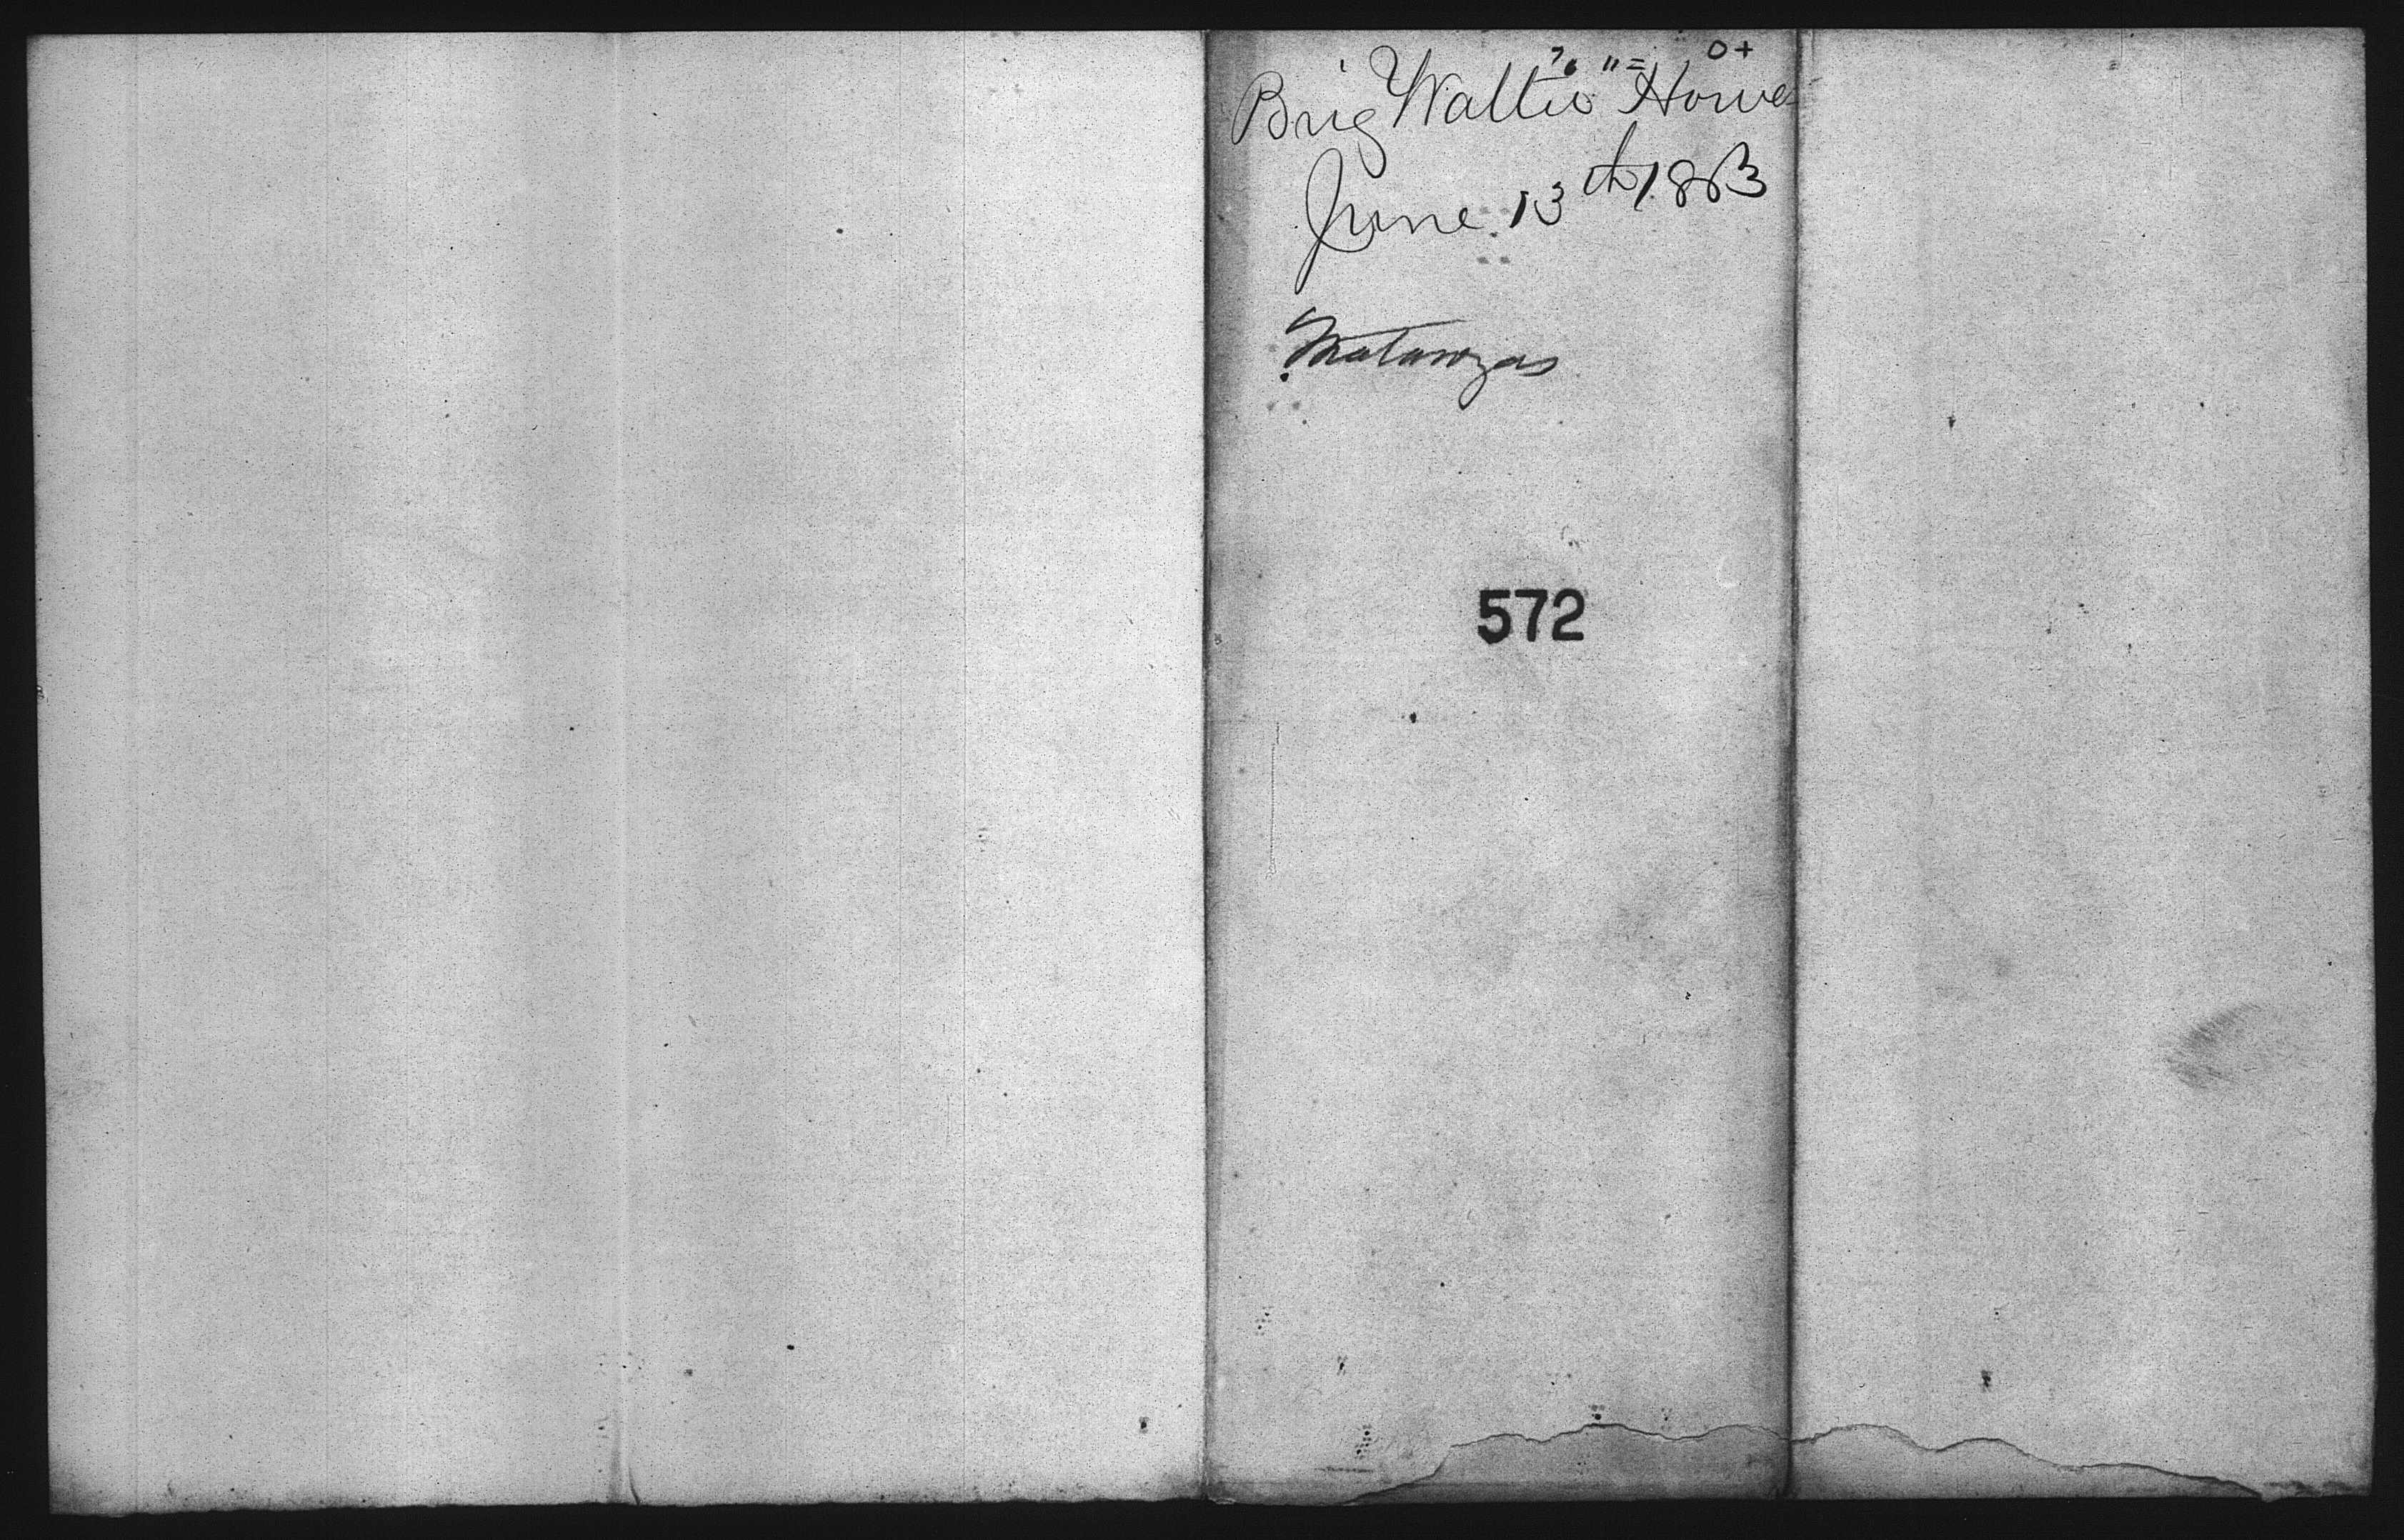 Brig Walter Howe
June 13th 1863
Matanzas
572